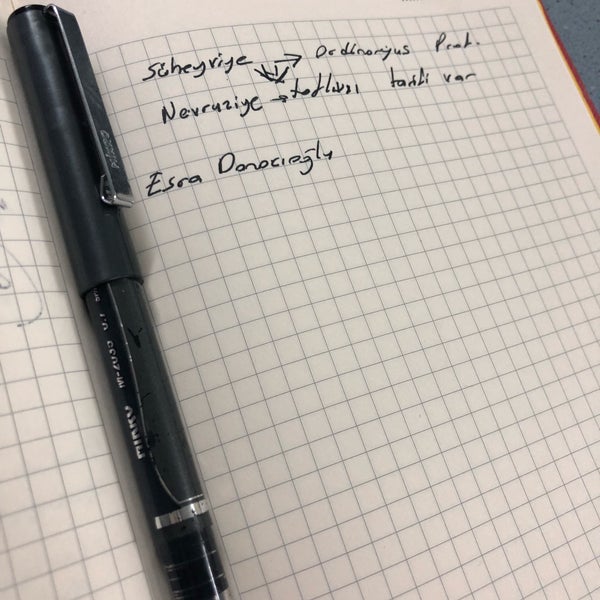 Süheyriye → Ordinaryus Prof.
Nevruziye → tatlısı tarifi var
Esra Danacıoğlu
MIKRO
M-2038 0.7